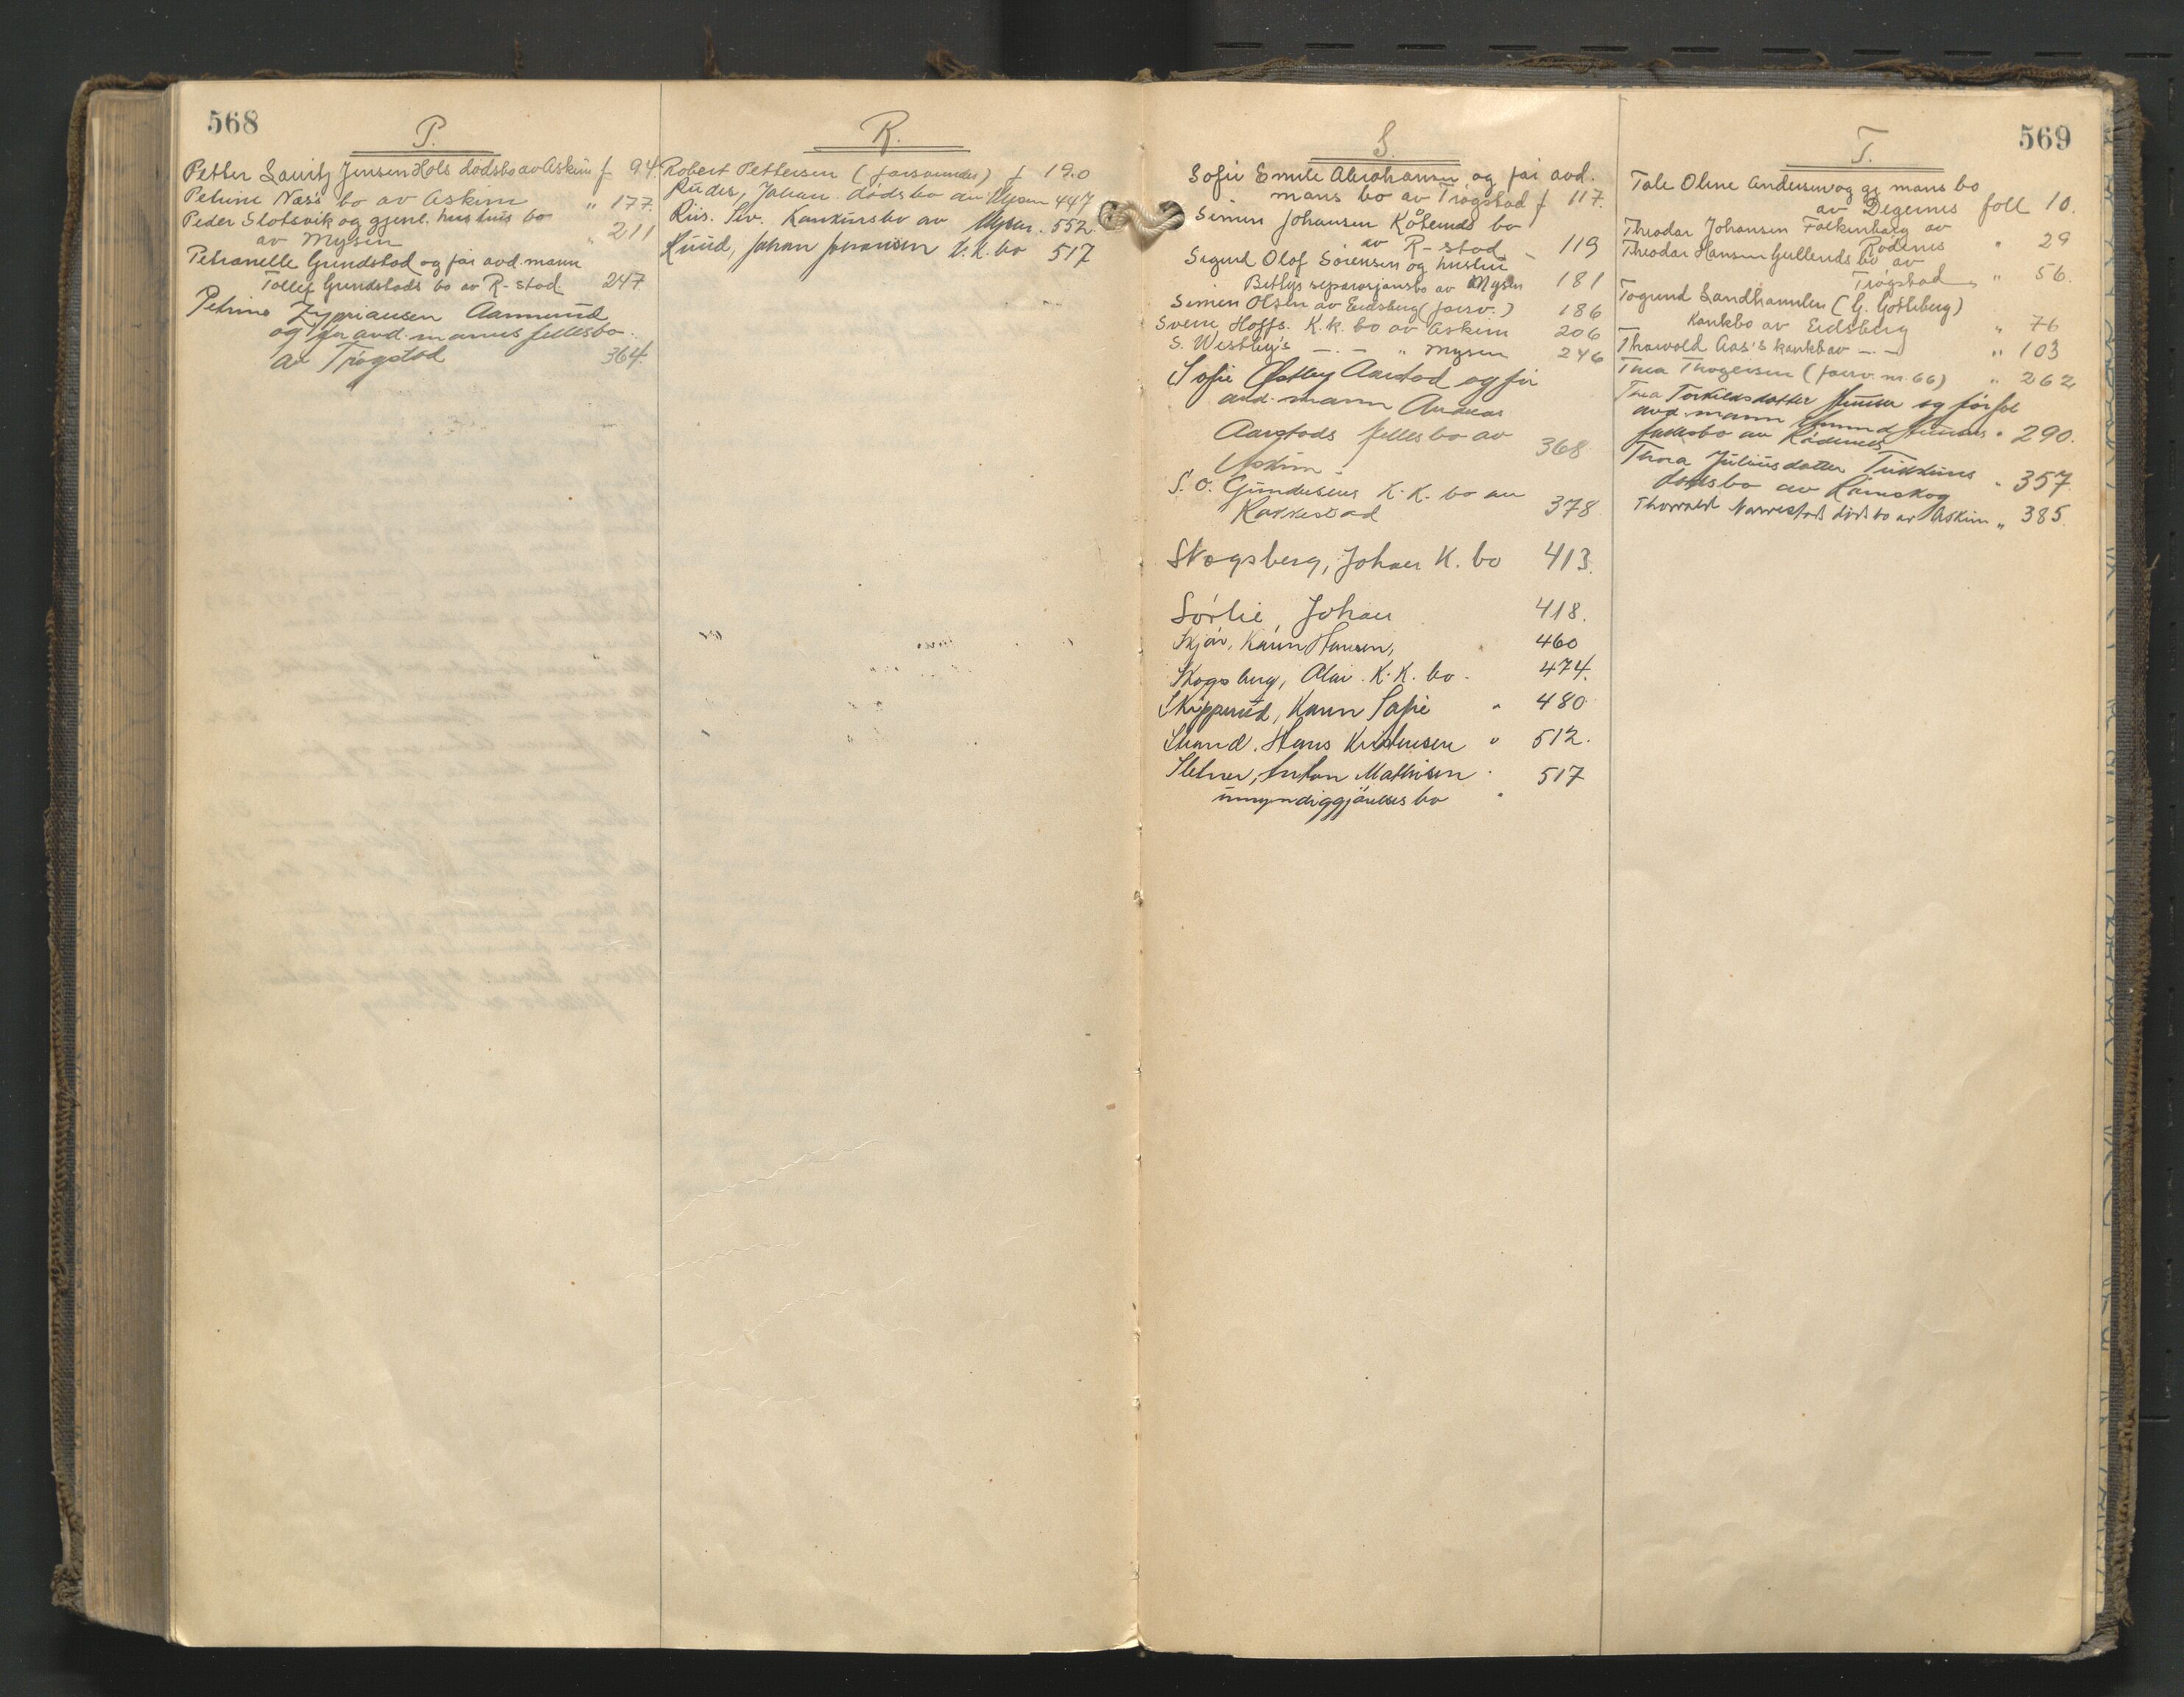 568
P.
Petter Lauritz Jensen Hols dødsbo av Askim f 94
Petrine Næss bo av Askim " 177.
Peder Slotsvik og gjenl. hustrus bo
av Mysen " 211
Petranelle Grindstad og før avd. mann
Tollef Grindstads bo av R-stad. 247.
Petrine Zypriansen Aamund
og før avd. manns fellesbo
av Trøgstad 364.
R.
Robert Pettersen (forsvunden) f 190
Ruder, Johan. dødsbo av Mysen 447
Riis. Konkursbo av Mysen. 552.
Johan Johansen K.K. bo 517
S.
Sofie Emilie Abrahamsen og før avd.
mans bo av Trøgstad f 117.
Simen Johansen bo
av R-stad - 119
Sigurd Olof Sørensen og hustru
Betlys separasjonsbo av Mysen 181
Simen Olsen av Eidsberg (forsv.) 186
Svein Hoffs. K.k. bo av Askim 206
S. Westby's -.- " Mysen 246
Sofie Østby Aarstad og før
avd. mann Andreas
Aarstads fellesbo av
Askim. 368
S. O. Gundersens K.K. bo av
Rakkestad 378
Skogsberg, Johan K. bo 413.
Sørlie, Johan 418.
Skjør, Karin Hansen, 460
Skogsberg, Olav. K.K. bo. 474.
Skipperud, Karen Sofie " 480
Strand. Hans Kristensen " 512.
Sletner, Anton Mathisen 517
umyndiggjørelses bo "
569
T.
Tale Oline Andersen og gj. mans bo
av Degernes foll 10.
Theodor Johansen Falkenberg av
Rødenes " 29
Theodor Hansen Gullerids bo av
Trøgstad " 56.
Togrund Sandhammlen (G. Gotteberg)
Konkbo av Eidsberg " 76
Thorvald Aas's konkbo av -.- " 103
Thea Thogersen (forsv. nr. 66) " 262
Thea Torkildsdatter og før
avd. mann
fellesbo av Rødenes " 290.
Thora Juliusdatter
dødsbo av Rømskog " 357
Thorvald Narvestads dødsbo av Askim " 385.